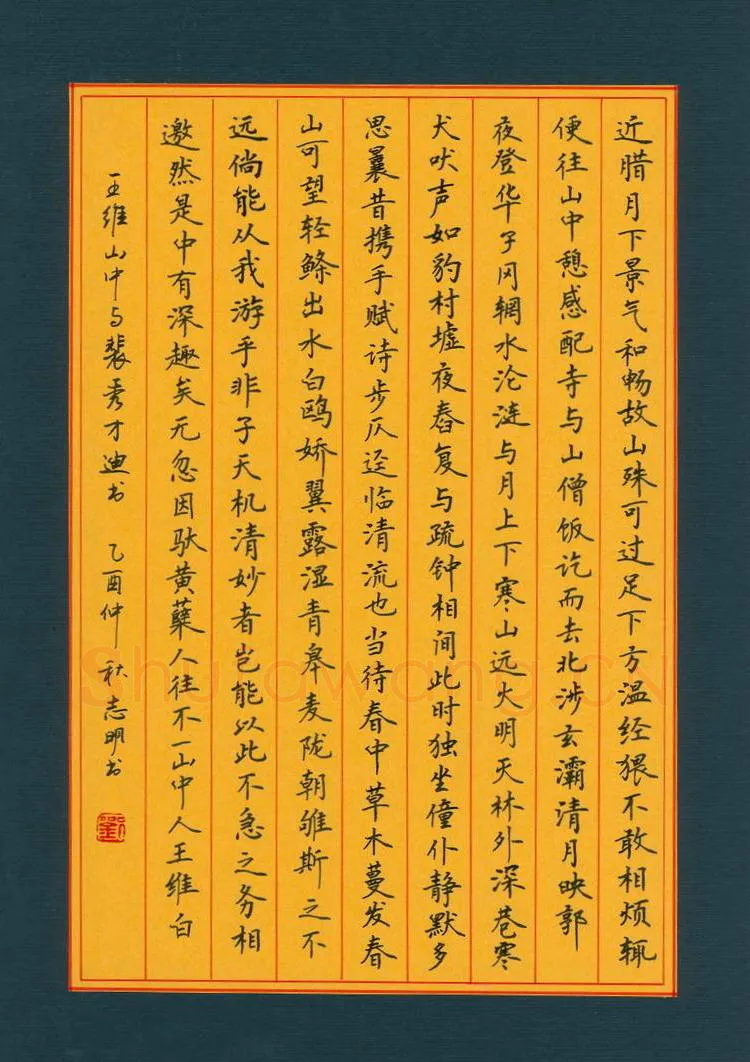 近腊月下景气和畅故山殊可过足下方温经猥不敢相烦辄
便往山中憩感配寺与山僧饭讫而去北涉玄灞清月映郭
夜登华子冈辋水沦涟与月上下寒山远火明灭林外深巷寒
犬吠声如豹村墟夜舂复与疏钟相间此时独坐僮仆静默多
思曩昔携手赋诗步仄迳临清流也当待春中草木蔓发春
山可望轻鲦出水白鸥娇翼露湿青皋麦陇朝雊斯之不
远倘能从我游乎非子天机清妙者岂能以此不急之务相
邀然是中有深趣矣无忽因驮黄蘖人往不一山中人王维白
王维山中与裴秀才迪书 乙酉仲秋志明书
劉
Shufawang.CN